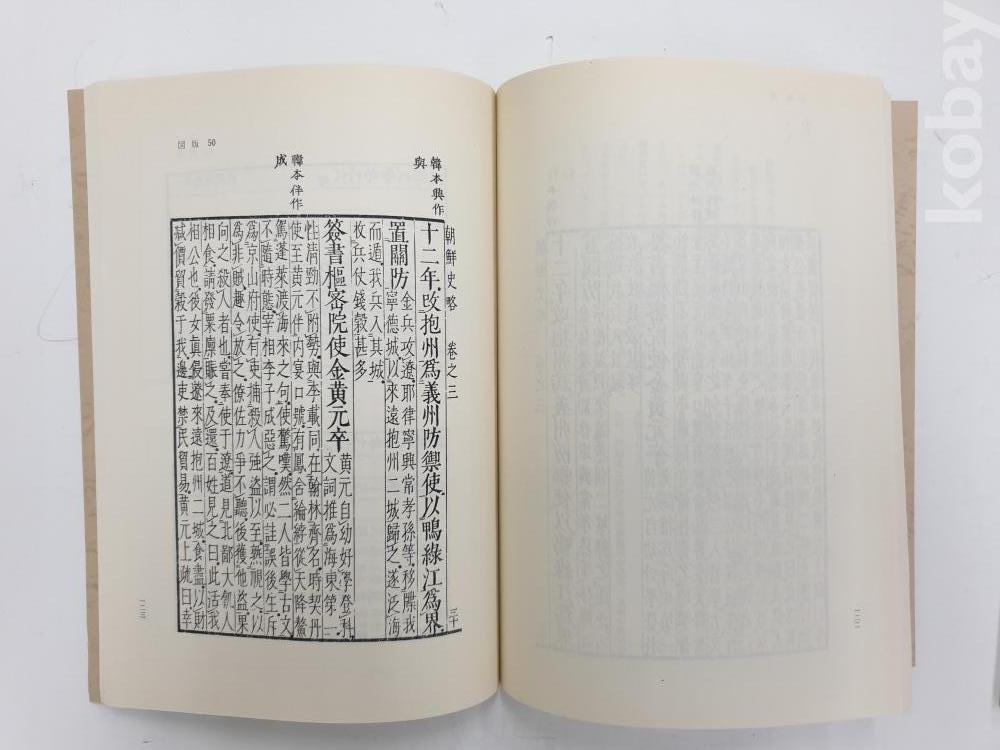 kobay
図版 50
韓本興作
與
韓本伴作
成
朝鮮史略 卷之三 三十
十二年改抱州爲義州防禦使以鴨綠江爲界
置關防
金兵攻遼耶律寧興常孝孫等移牒我
寧德城以來遠抱州二城歸之遂泛海
而遁我兵入其城
收兵仗錢穀甚多
簽書樞密院使金黃元卒
黃元自幼好學登科
文詞推爲海東第一
性淸勁不附勢與李載同在翰林齊名時契丹
使至黃元伴内宴口號有鳳舍綸綍從天降鰲
駕蓬萊渡海來之句使驚嘆然二人皆學古文
不隨時態宰相李子成惡之謂必註誤後生斥
爲京山府使有吏捕殺人強盜以至無視之以
爲非賊趣令放之僚佐力爭不聽後獲他盜果
向之殺人者也嘗奉使于遼道見北鄙大飢人
相食請發粟廩賑之及還百姓見之曰此活我
相公也後女真侵遼來遠抱州二城食盡以財
減價貿穀于我邊吏禁民貿易黃元上疏曰幸